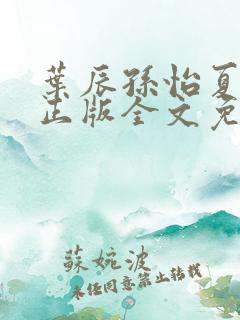 葉辰孫怡夏
正版全文免
蘇婉波
未经同意禁止转载